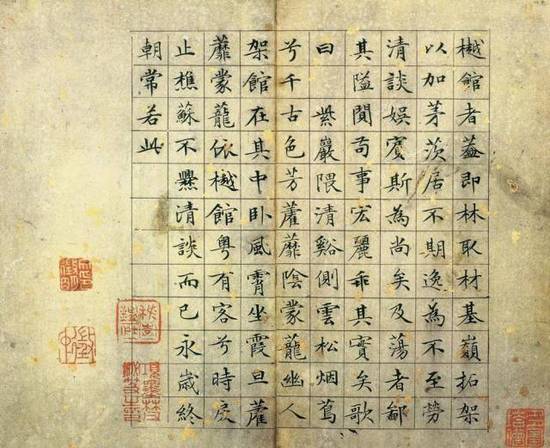 樾館者蓋即林取材基巔拓架
以加茅茨居不期逸為不至勞
清談娛賓斯為尚矣及蕩者鄙
其隘閴苟事宏麗乖其實矣歌
曰 紫巖隈清谿側雲松烟蔦
兮千古色芳藿蘼陰蒙蘢幽人
架館在其中卧風霄坐霞旦藿
蘼蒙蘢依樾館粵有客兮時戾
止樵蘇不爨清談而已永歲終
朝常若此